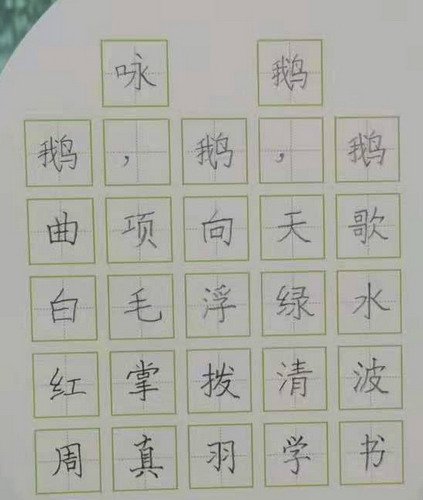 咏鹅
鹅，鹅，鹅
曲项向天歌
白毛浮绿水
红掌拨清波
周真羽学书